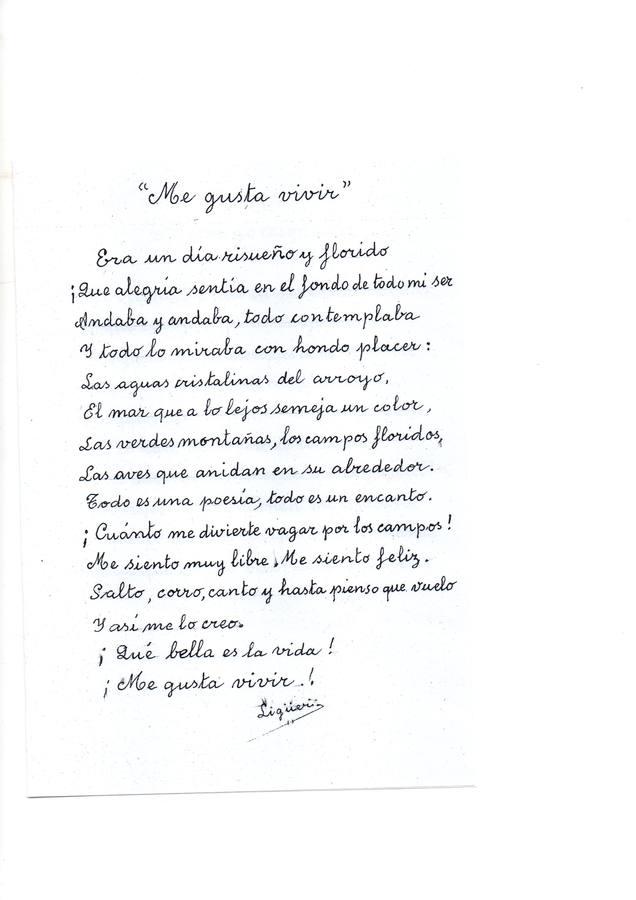 "Me gusta vivir"
Era un día risueño y florido
¡Que alegría sentía en el fondo de todo mi ser
Andaba y andaba, todo contemplaba
Y todo lo miraba con hondo placer:
Las aguas cristalinas del arroyo,
El mar que a lo lejos semeja un color,
Las verdes montañas, los campos floridos,
Las aves que anidan en su abrededor.
Todo es una poesía, todo es un encanto.
¡Cuánto me divierte vagar por los campos!
Me siento muy libre, Me siento feliz.
Salto, corro, canto y hasta pienso que vuelo
Y así me lo creo.
¡Qué bella es la vida!
¡Me gusta vivir.!